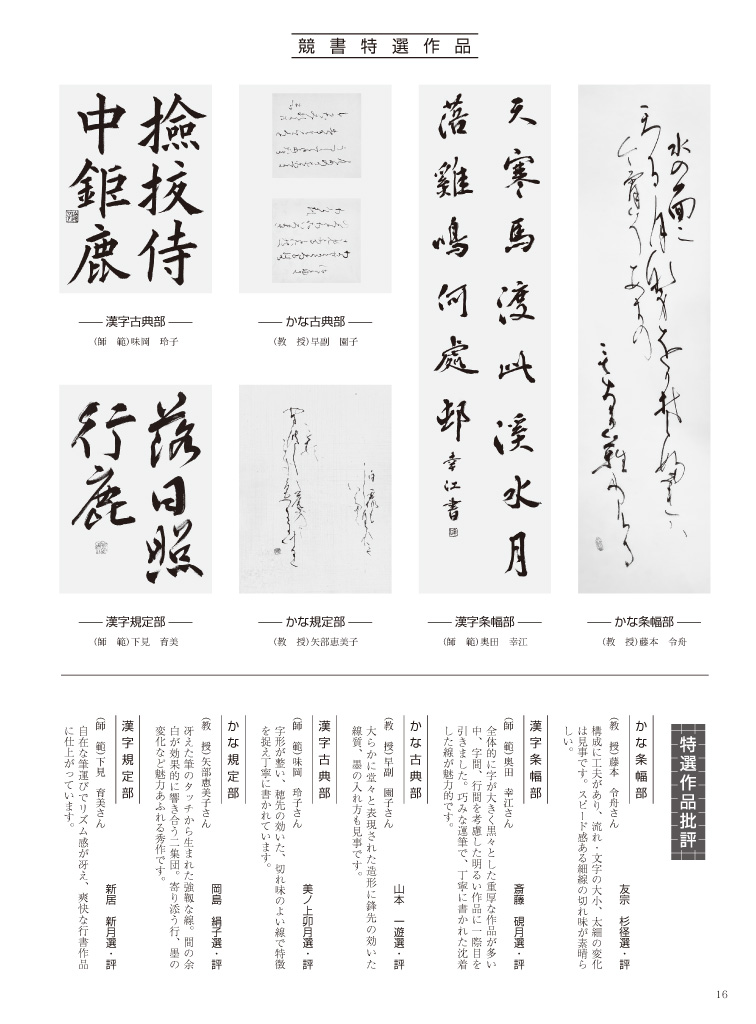 競書特選作品
撿挍侍
中鉅鹿
── 漢字古典部 ──
（師　範）味岡　玲子
── かな古典部 ──
（教　授）早副　園子
天寒馬渡此溪水月
落雞鳴何處邨　幸江書
── 漢字条幅部 ──
（師　範）奥田　幸江
── かな条幅部 ──
（教　授）藤本　令舟
落日照
行鹿
── 漢字規定部 ──
（師　範）下見　育美
── かな規定部 ──
（教　授）矢部恵美子
特選作品批評
かな条幅部
（教　授）藤本　令舟さん
友宗　杉径選・評
構成に工夫があり、流れ・文字の大小、太細の変化
は見事です。スピード感ある細線の切れ味が素晴ら
しい。
漢字条幅部
（師　範）奥田　幸江さん
斎藤　硯月選・評
全体的に字が大きく黒々とした重厚な作品が多い
中、字間、行間を考慮した明るい作品に一際目を
引きました。巧みな運筆で、丁寧に書かれた沈着
した線が魅力的です。
かな古典部
（教　授）早副　園子さん
山本　一遊選・評
大らかに堂々と表現された造形に鋒先の効いた
線質、墨の入れ方も見事です。
漢字古典部
（師　範）味岡　玲子さん
美ノ上卯月選・評
字形が整い、穂先の効いた、切れ味のよい線で特徴
を捉え丁寧に書かれています。
かな規定部
（教　授）矢部恵美子さん
岡島　絹子選・評
冴えた筆のタッチから生まれた強靱な線。間の余
白が効果的に響き合う二集団。寄り添う行、墨の
変化など魅力あふれる秀作です。
漢字規定部
（師　範）下見　育美さん
新居　新月選・評
自在な筆運びでリズム感が冴え、爽快な行書作品
に仕上がっています。
16